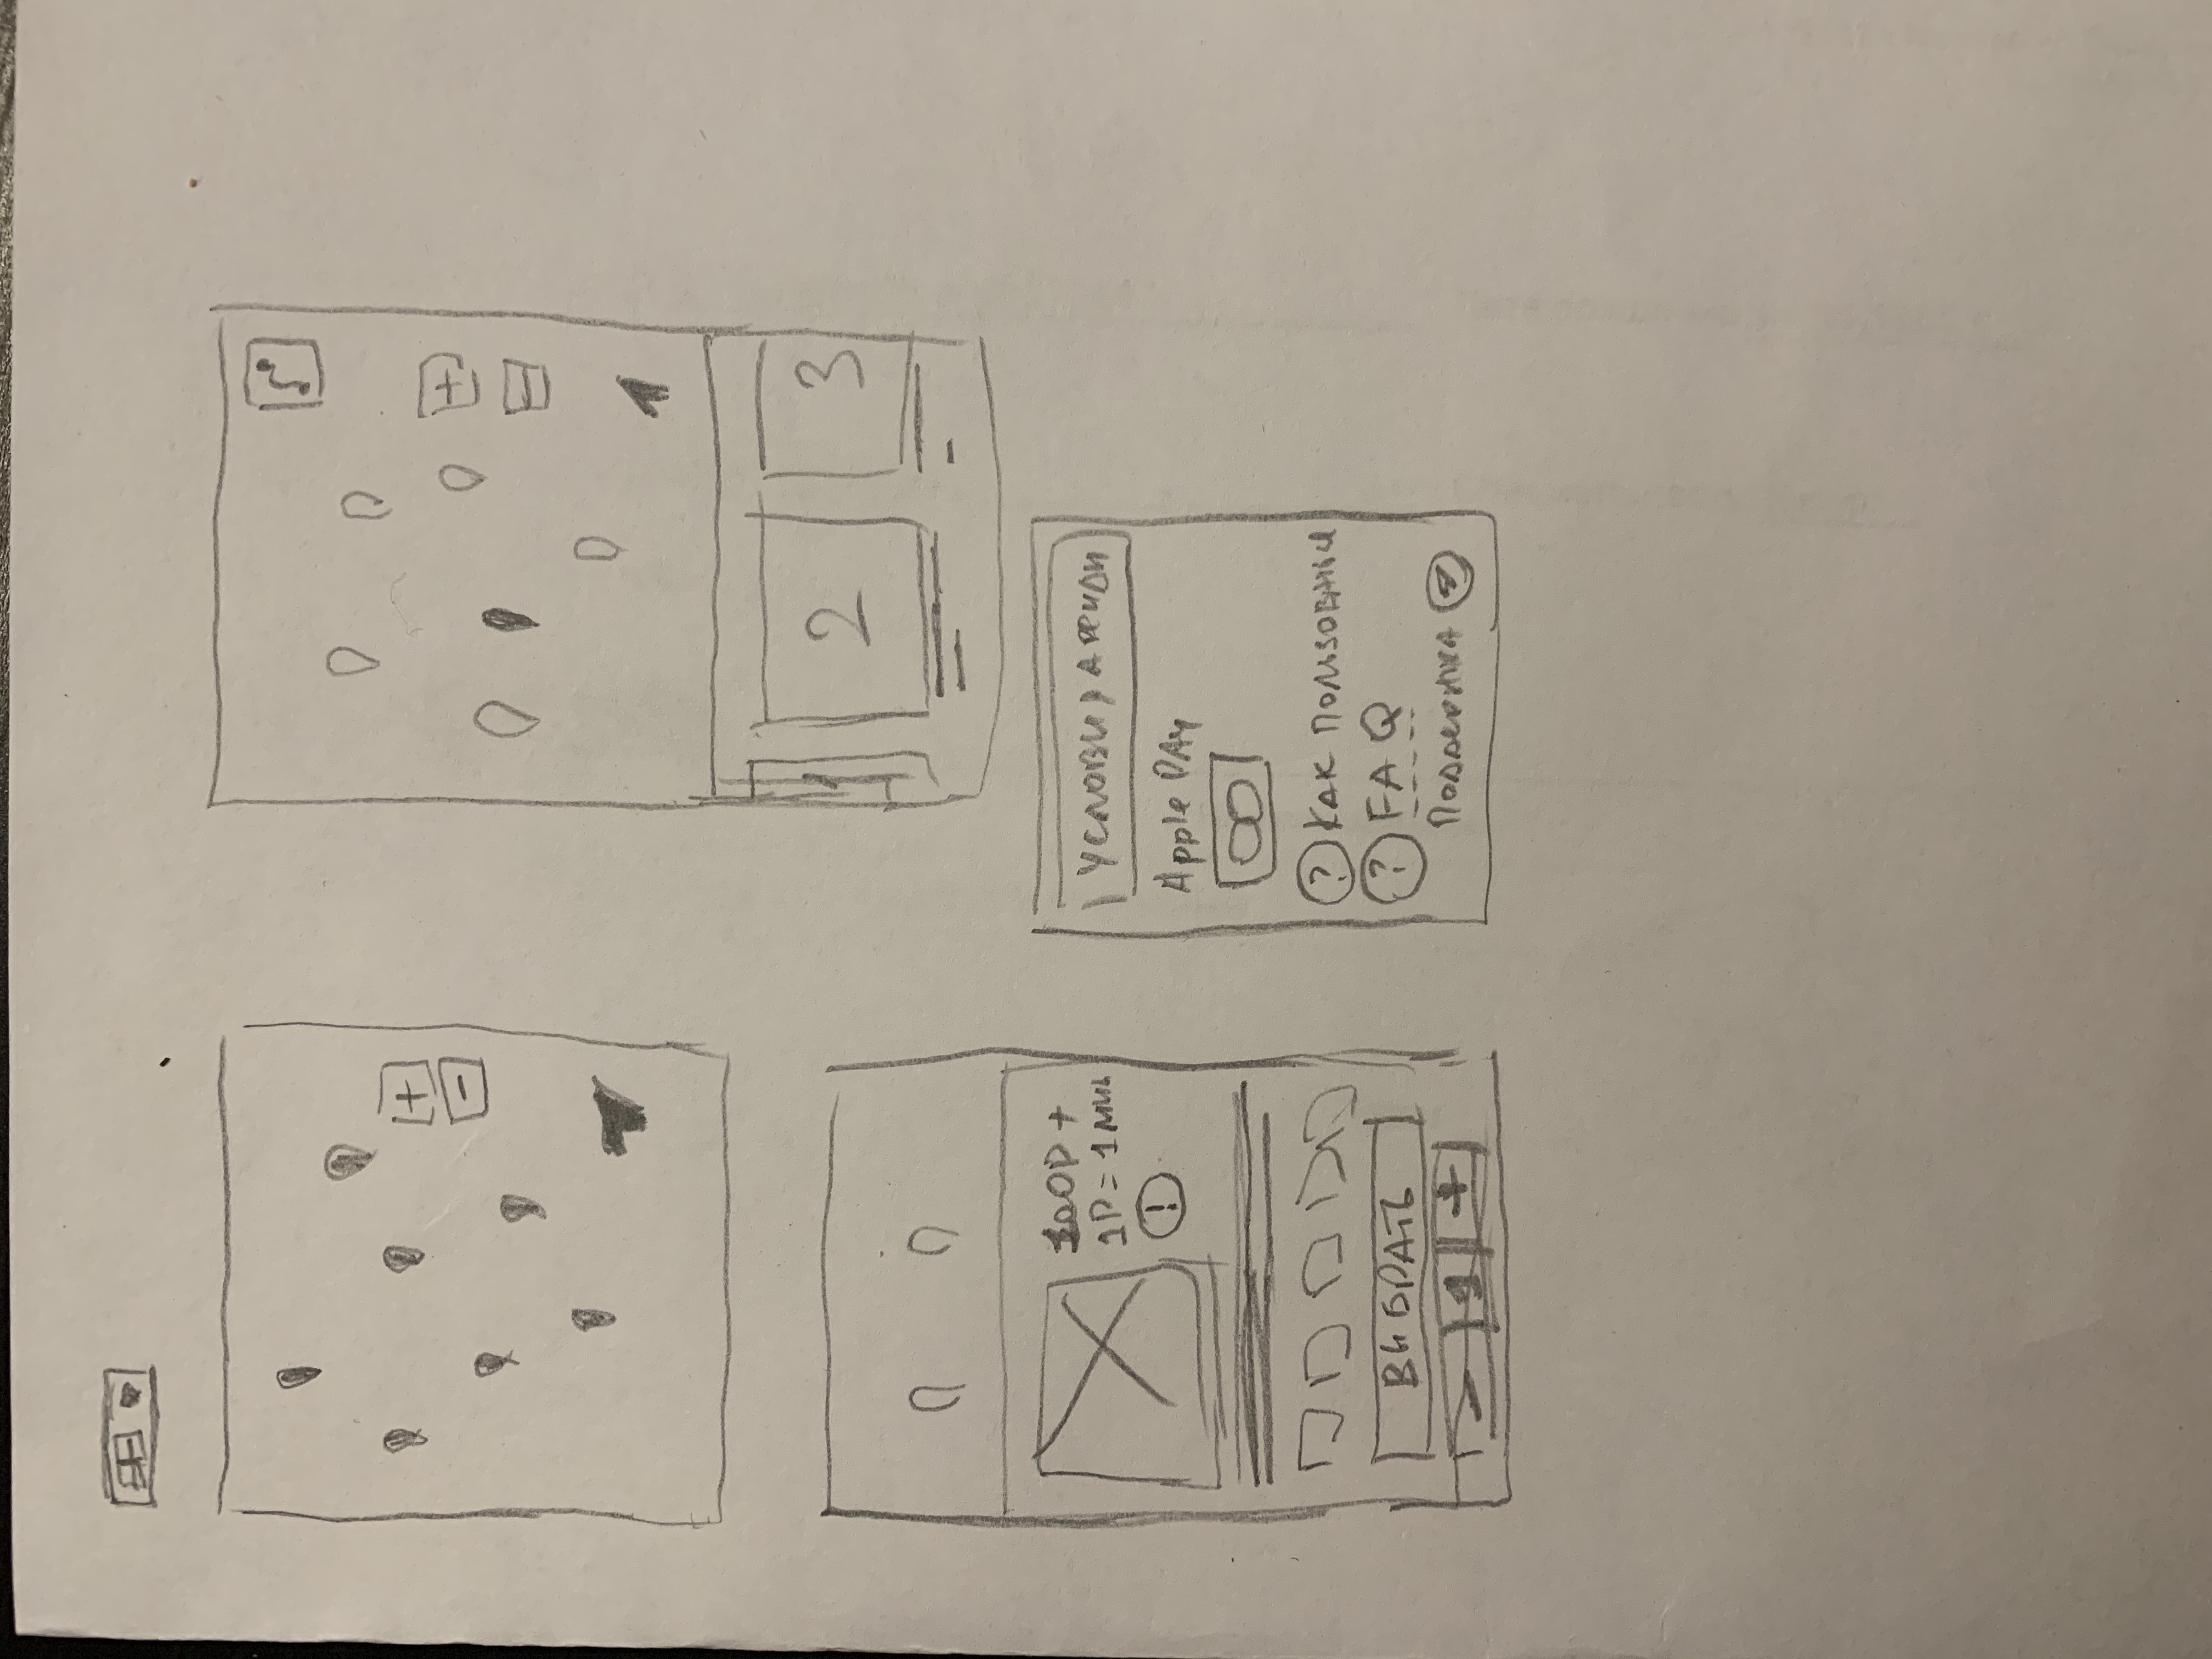 +
-
+
-
1
2
3
100Р +
1Р = 1 мин
!
ВЫБРАТЬ
- 1 +
УСЛОВИЯ АРЕНДЫ
Apple PAy
? КАК ПОЛЬЗОВАТЬСЯ
? FAQ
Поддержка